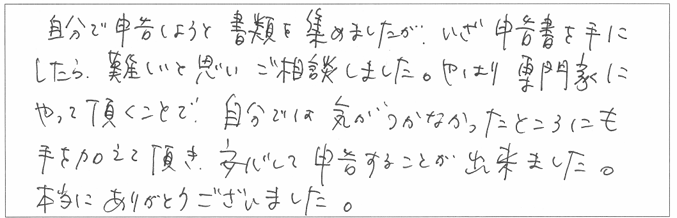 自分で申告しようと書類を集めましたが、いざ申告書を手に
したら、難しいと思いご相談しました。やはり専門家に
やって頂くことで、自分では気がつかなかったところにも
手を加えて頂き、安心して申告することが出来ました。
本当にありがとうございました。